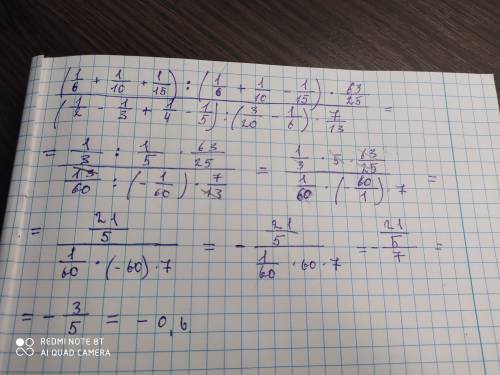 (1/6 + 1/10 + 1/15) : (1/6 + 1/10 - 1/15) · 63/25
(1/2 - 1/3 + 1/4 - 1/5) : (3/20 - 1/6) · 7/13 =
= 1/3 : 1/5 · 63/25 / 13/60 : (-1/60) · 7/13 = 1/3 · 5 · 63/25 / 1/60 · (-60/1) · 7 =
= 21/5 / 1/60 · (-60) · 7 = - 21/5 / 1/60 · 60 · 7 = - 21/5 / 7 =
= - 3/5 = - 0,6
REDMI NOTE 8T
AI QUAD CAMERA